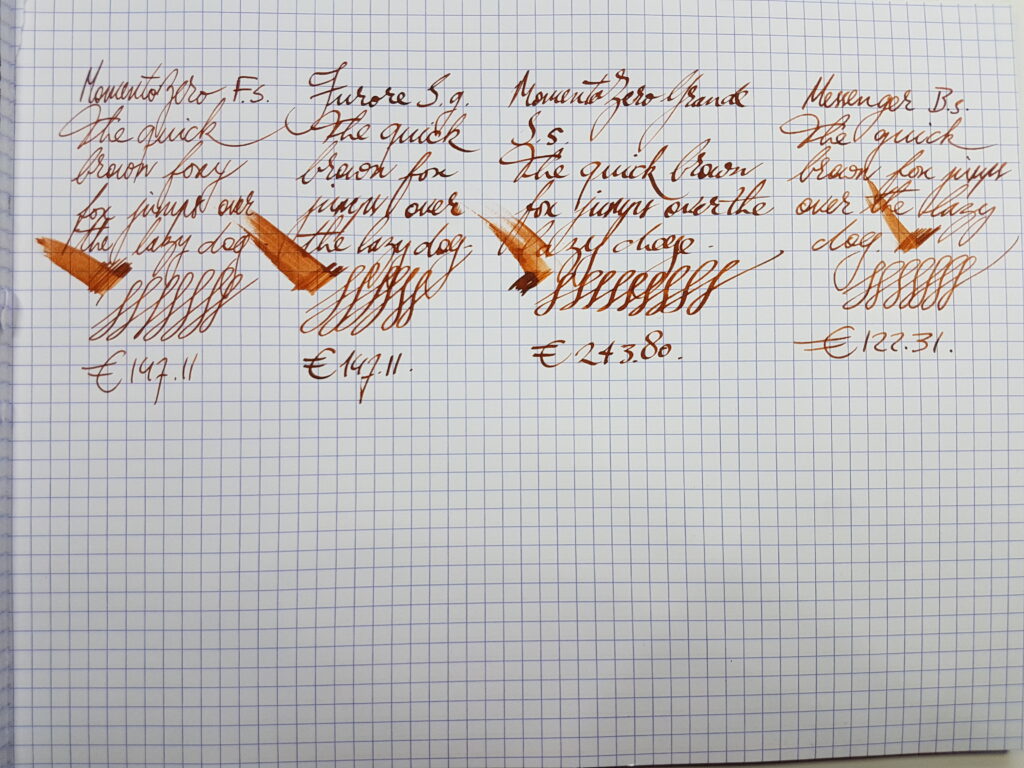 Momento Zero F.s.
The quick
brown foxy
fox jumps over
the lazy dog
€147.11
Furore S.g.
The quick
brown fox
jumps over
the lazy dog.
€147.11.
Momento Zero Grande
S.s
The quick brown
fox jumps over the
lazy doge.
€243.80.
Messenger B.s.
The quick
brown fox jumps
over the lazy
dog
€122.31.